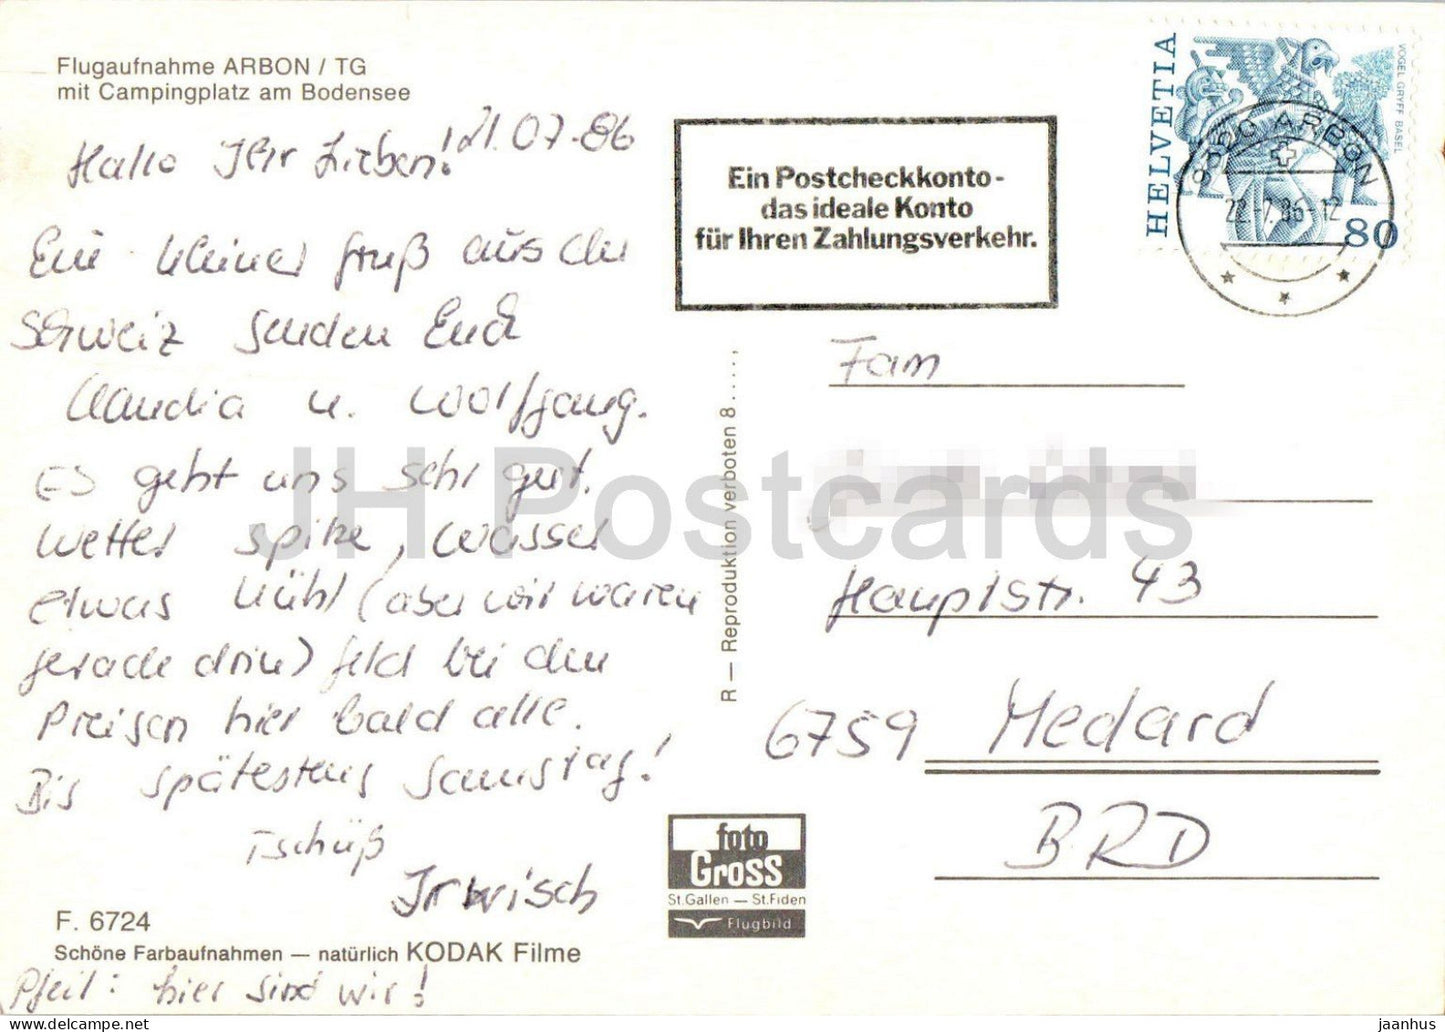 Flugaufnahme ARBON / TG
mit Campingplatz am Bodensee
21.07.86
Hallo Ihr Lieben!
Ein kleiner Gruß aus der
Schweiz senden Euch
Claudia u. Wolfgang.
Es geht uns sehr gut.
Wetter spitze, Wasser
etwas kühl (aber wir waren
gerade drin) Geld bei den
Preisen hier bald alle.
Bis spätestens Samstag!
Tschüß
Irwisch
F. 6724
Schöne Farbaufnahmen — natürlich KODAK Filme
Pfeil: hier sind wir!
Ein Postcheckkonto-
das ideale Konto
für Ihren Zahlungsverkehr.
HELVETIA
VOGEL GRYFF BASEL
80
9320 ARBON
22.-7.86-12
R — Reproduktion verboten 8.....
Fam
Hauptstr. 43
6759 Medard
BRD
foto
Gross
St.Gallen — St.Fiden
Flugbild
JH Postcards
jaanhus @ delcampe.net